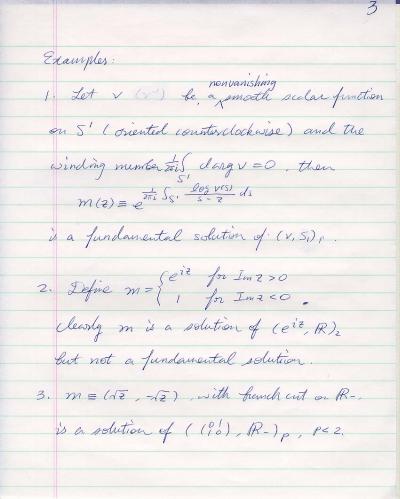 3
Examples:
1. Let v be a nonvanishing smooth scalar function
on S¹ (oriented counterclockwise) and the
winding number 1/2πi ∫_{S¹} d arg v = 0, then
m(z) ≡ e^{1/2πi ∫_{S¹} log v(s)/(s - z) ds}
is a fundamental solution of (v, S¹)ₚ.
2. Define m = { e^{iz} for Im z > 0
1 for Im z < 0 .
Clearly m is a solution of (e^{iz}, ℝ)₂
but not a fundamental solution.
3. m ≡ (√z, -√z), with branch cut on ℝ₋,
is a solution of ((0 1 / 1 0), ℝ₋)ₚ, p < 2.